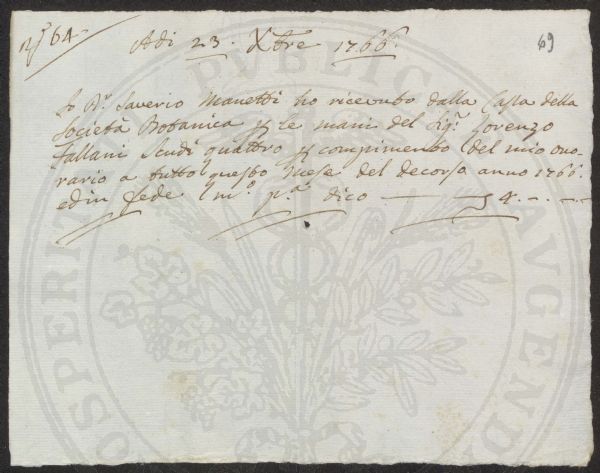 N.° 64
69
Adi 23. Xbre 1766.
Io Dr. Saverio Manetti ho ricevuto dalla Cassa della
Società Botanica p le mani del Sig.r Lorenzo
Fallani Scudi quattro p compimento del mio ono-
rario a tutto questo Mese del decorso anno 1766.
ed in fede m.o p.a dico — 4. - . - -
PUBLICAE
PROSPERITATI
AUGENDAE